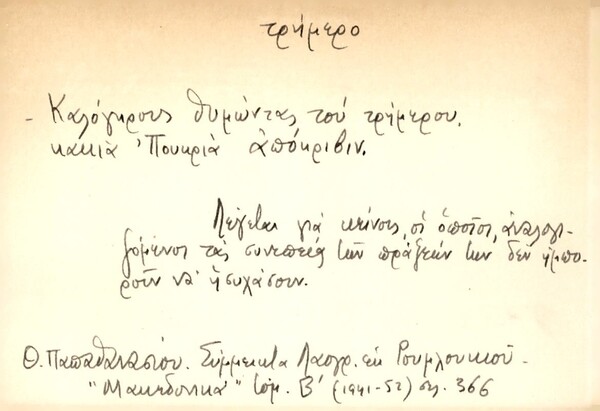 τρήμερο
- Καλόγηρους θυμώντας τού τρήμερου.
κακιὰ 'Πουκριὰ ἀπόκριβιν.
Λέγεται γιὰ κείνους, οἱ ὁποῖοι, ἀναλογι-
ζόμενοι τὰς συνεπείας τῶν πράξεών των δὲν ἠμπο-
ροῦν νὰ ἡσυχάσουν.
Θ. Παπαθανασίου. Σύμμεικτα Λαογρ. ἐκ Ρουμλουκιοῦ -
"Μακεδονικά" τόμ. Β' (1941-52) σελ. 366